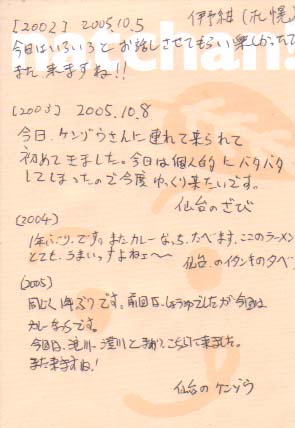 [2002] 2005.10.5 伊予紺(札幌)
今日はいろいろとお話しさせてもらい楽しかったで
また 来ますね!!
natchan!
[2003] 2005.10.8
今日、ケンゾウさんに連れて来られて
初めて来ました。今日は個人的にバタバタ
してしまったので今度ゆっくり来たいです。
仙台のざび
(2004)
1年ぶり、です。またカレーなっち、たべます。ここのラーメン
とても、うまいっすよねェ〜 仙台、のイタンキの夕べ
(2005)
同じく1年ぶりです。前回は、しょうゆでしたが今回は
カレーなっちです。
今回は、滝川、深川と、こちらに来ました。
また来ますね!
仙台の ケンゾウ